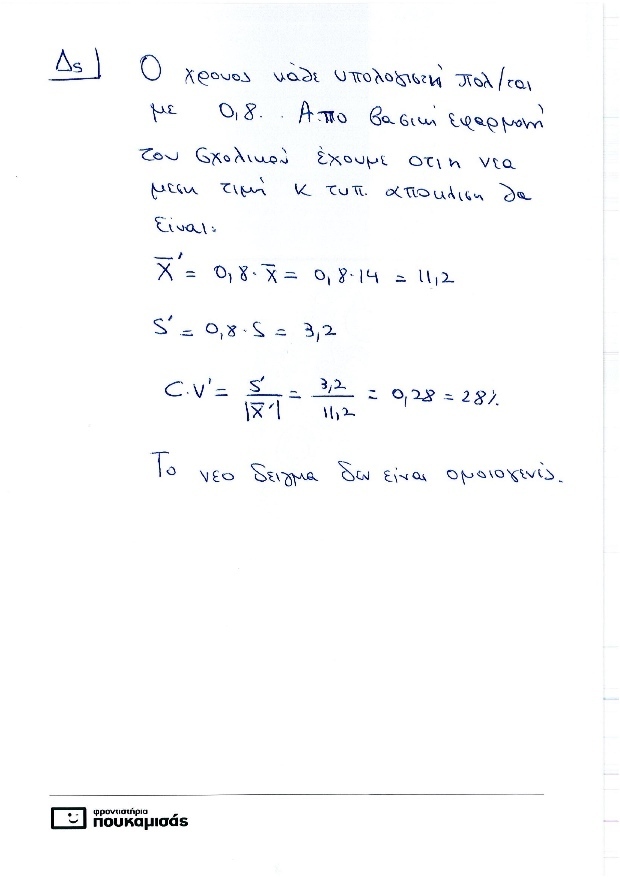 Δ5
Ο χρονος κάθε υπολογιστή πολ/ται
με 0,8. Απο βασική εφαρμογή
του σχολικού έχουμε οτι η νεα
μεση τιμή κ τυπ. αποκλιση θα
είναι:
X̄' = 0,8·x̄ = 0,8·14 = 11,2
S' = 0,8·S = 3,2
C.V' = S'/|X̄'| = 3,2/11,2 = 0,28 = 28%.
Το νεο δειγμα δεν είναι ομοιογενές.
φροντιστήριο
πουκαμισάς